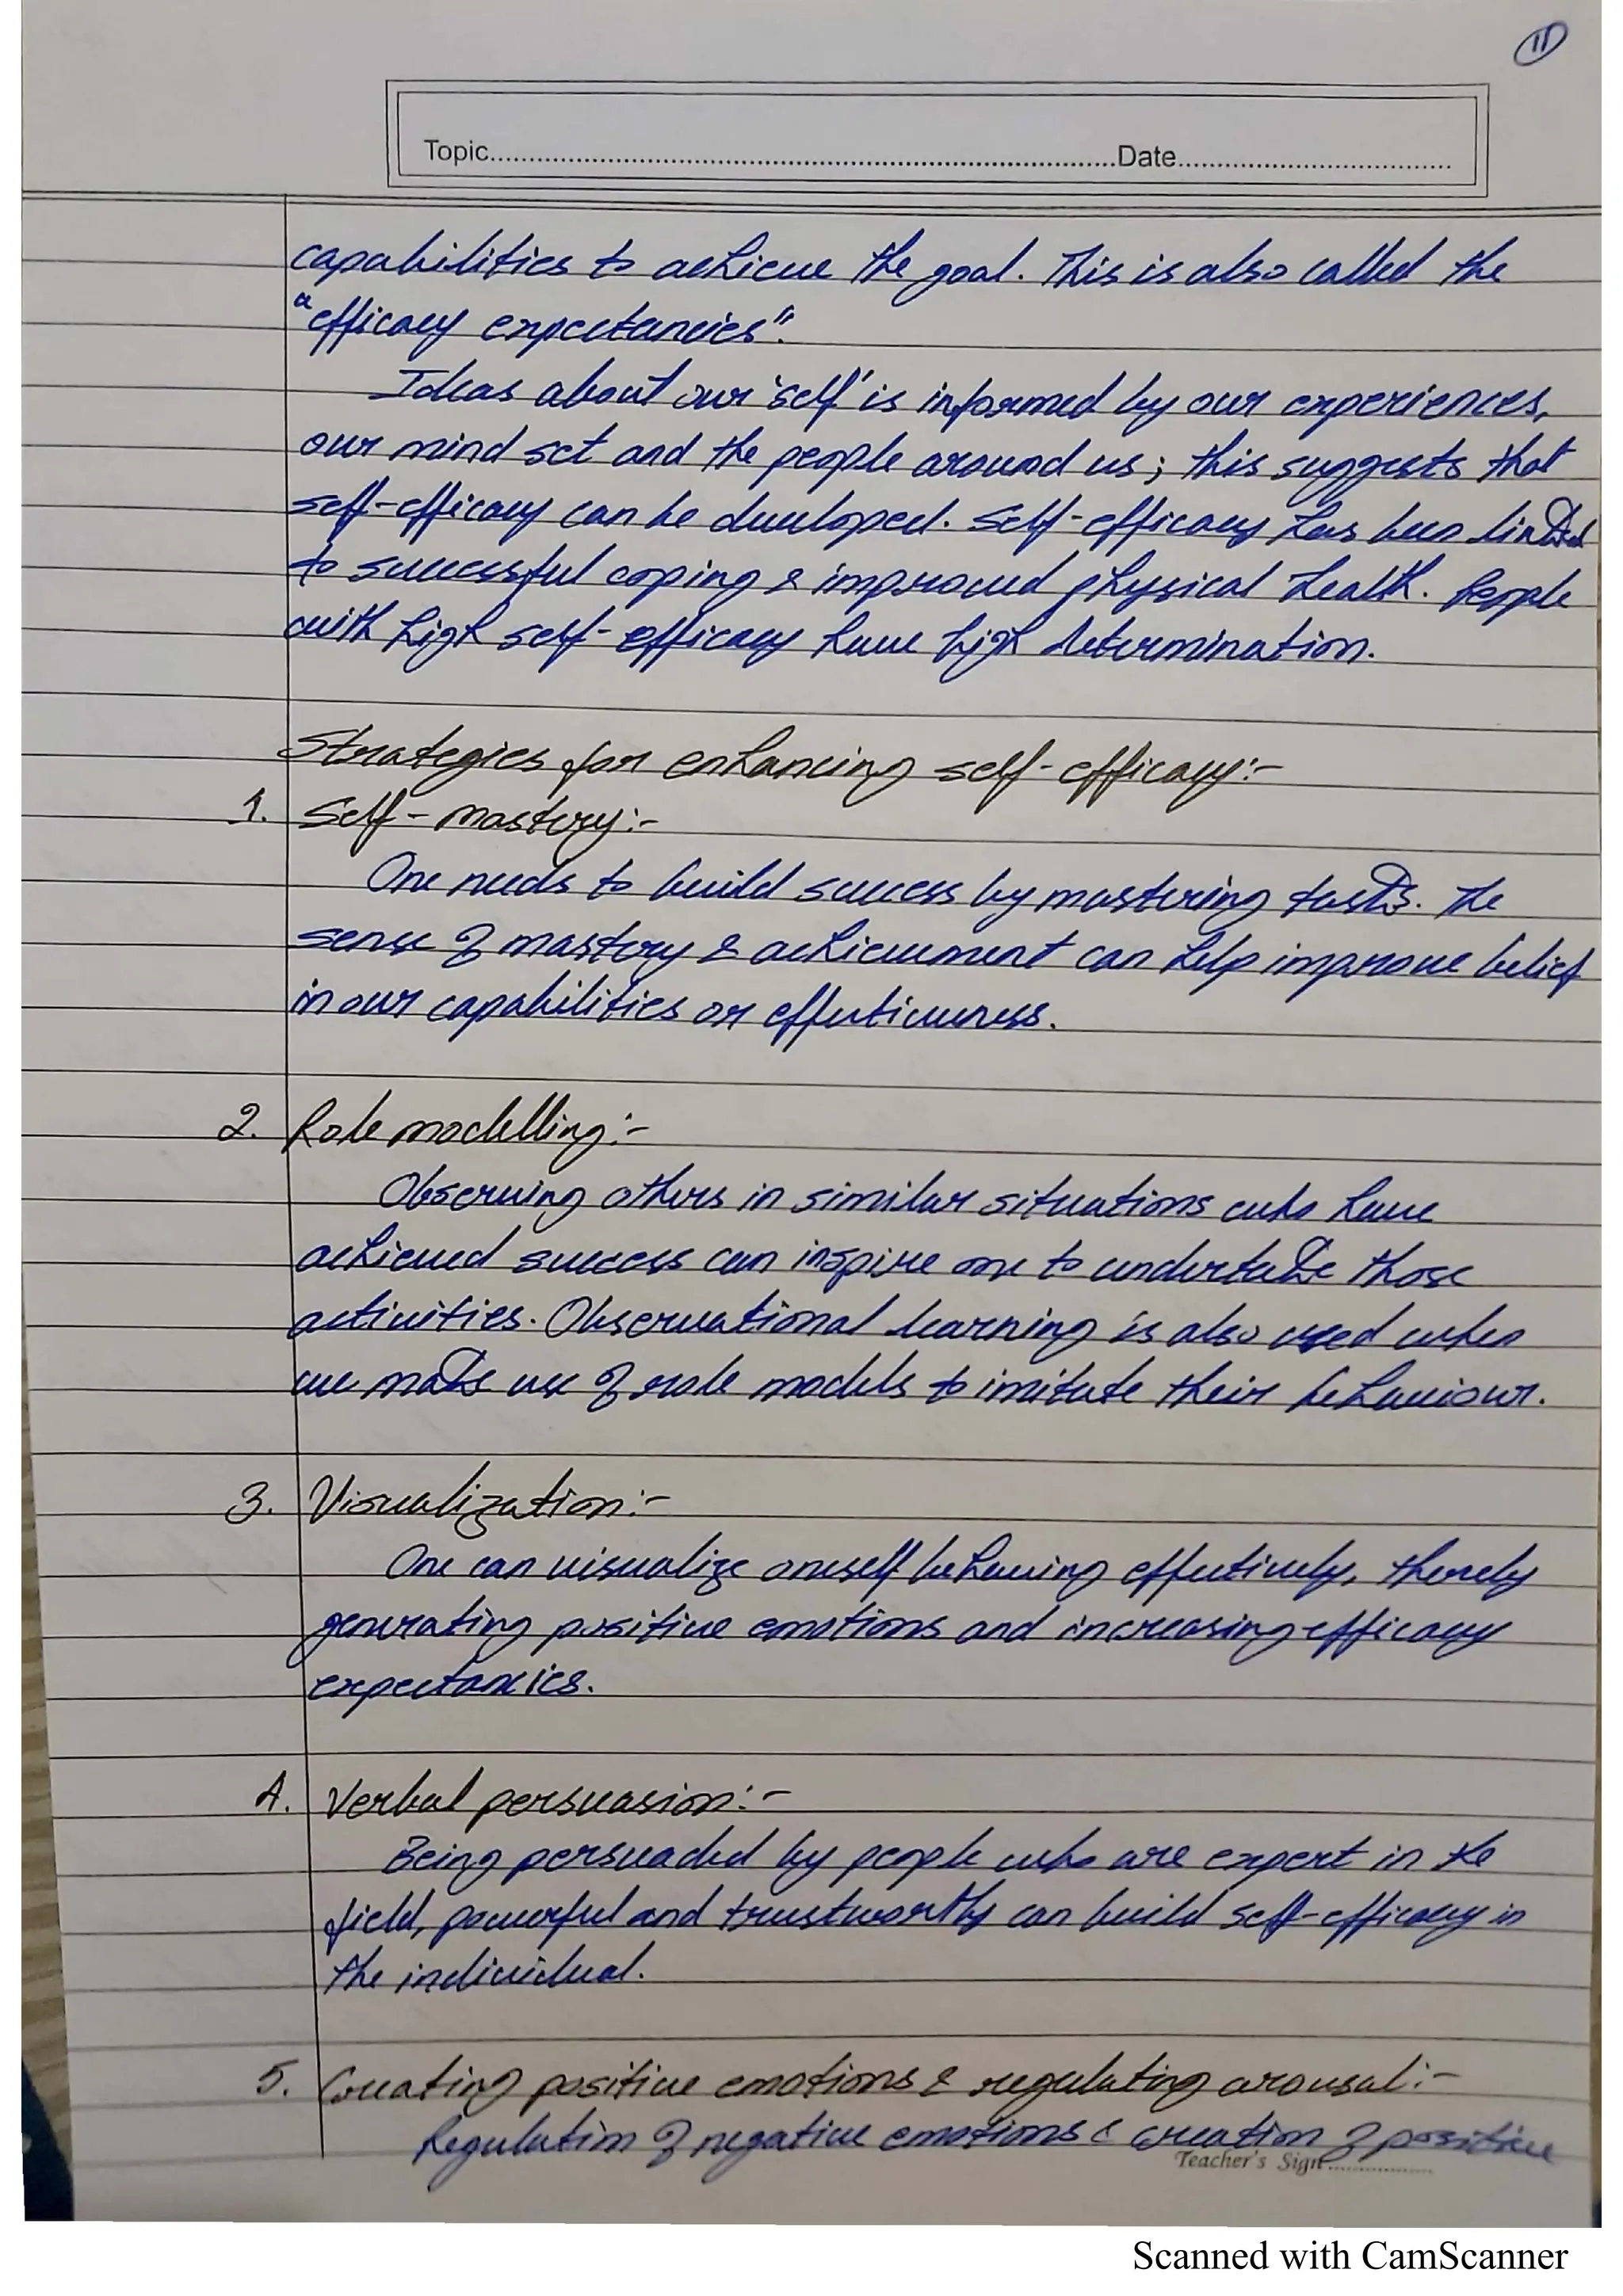 11
Topic.....Date.....
capabilities to achieve the goal. This is also called the
"efficacy expectancies".
Ideas about our 'self' is informed by our experiences,
our mind set and the people around us; this suggests that
self-efficacy can be developed. Self-efficacy has been linked
to successful coping & improved physical health. People
with high self-efficacy have high determination.
Strategies for enhancing self-efficacy:-
1. Self-mastery:-
One needs to build success by mastering tasks. The
sense of mastery & achievement can help improve belief
in our capabilities or effectiveness.
2. Role modelling:-
Observing others in similar situations who have
achieved success can inspire one to undertake those
activities. Observational learning is also used when
we make use of role models to imitate their behaviour.
3. Visualization:-
One can visualize oneself behaving effectively, thereby
generating positive emotions and increasing efficacy
expectancies.
4. Verbal persuasion:-
Being persuaded by people who are expert in the
field, powerful and trustworthy can build self-efficacy in
the individual.
5. Creating positive emotions & regulating arousal:-
Regulation of negative emotions & creation of positive
Teacher's Sign.....
Scanned with CamScanner